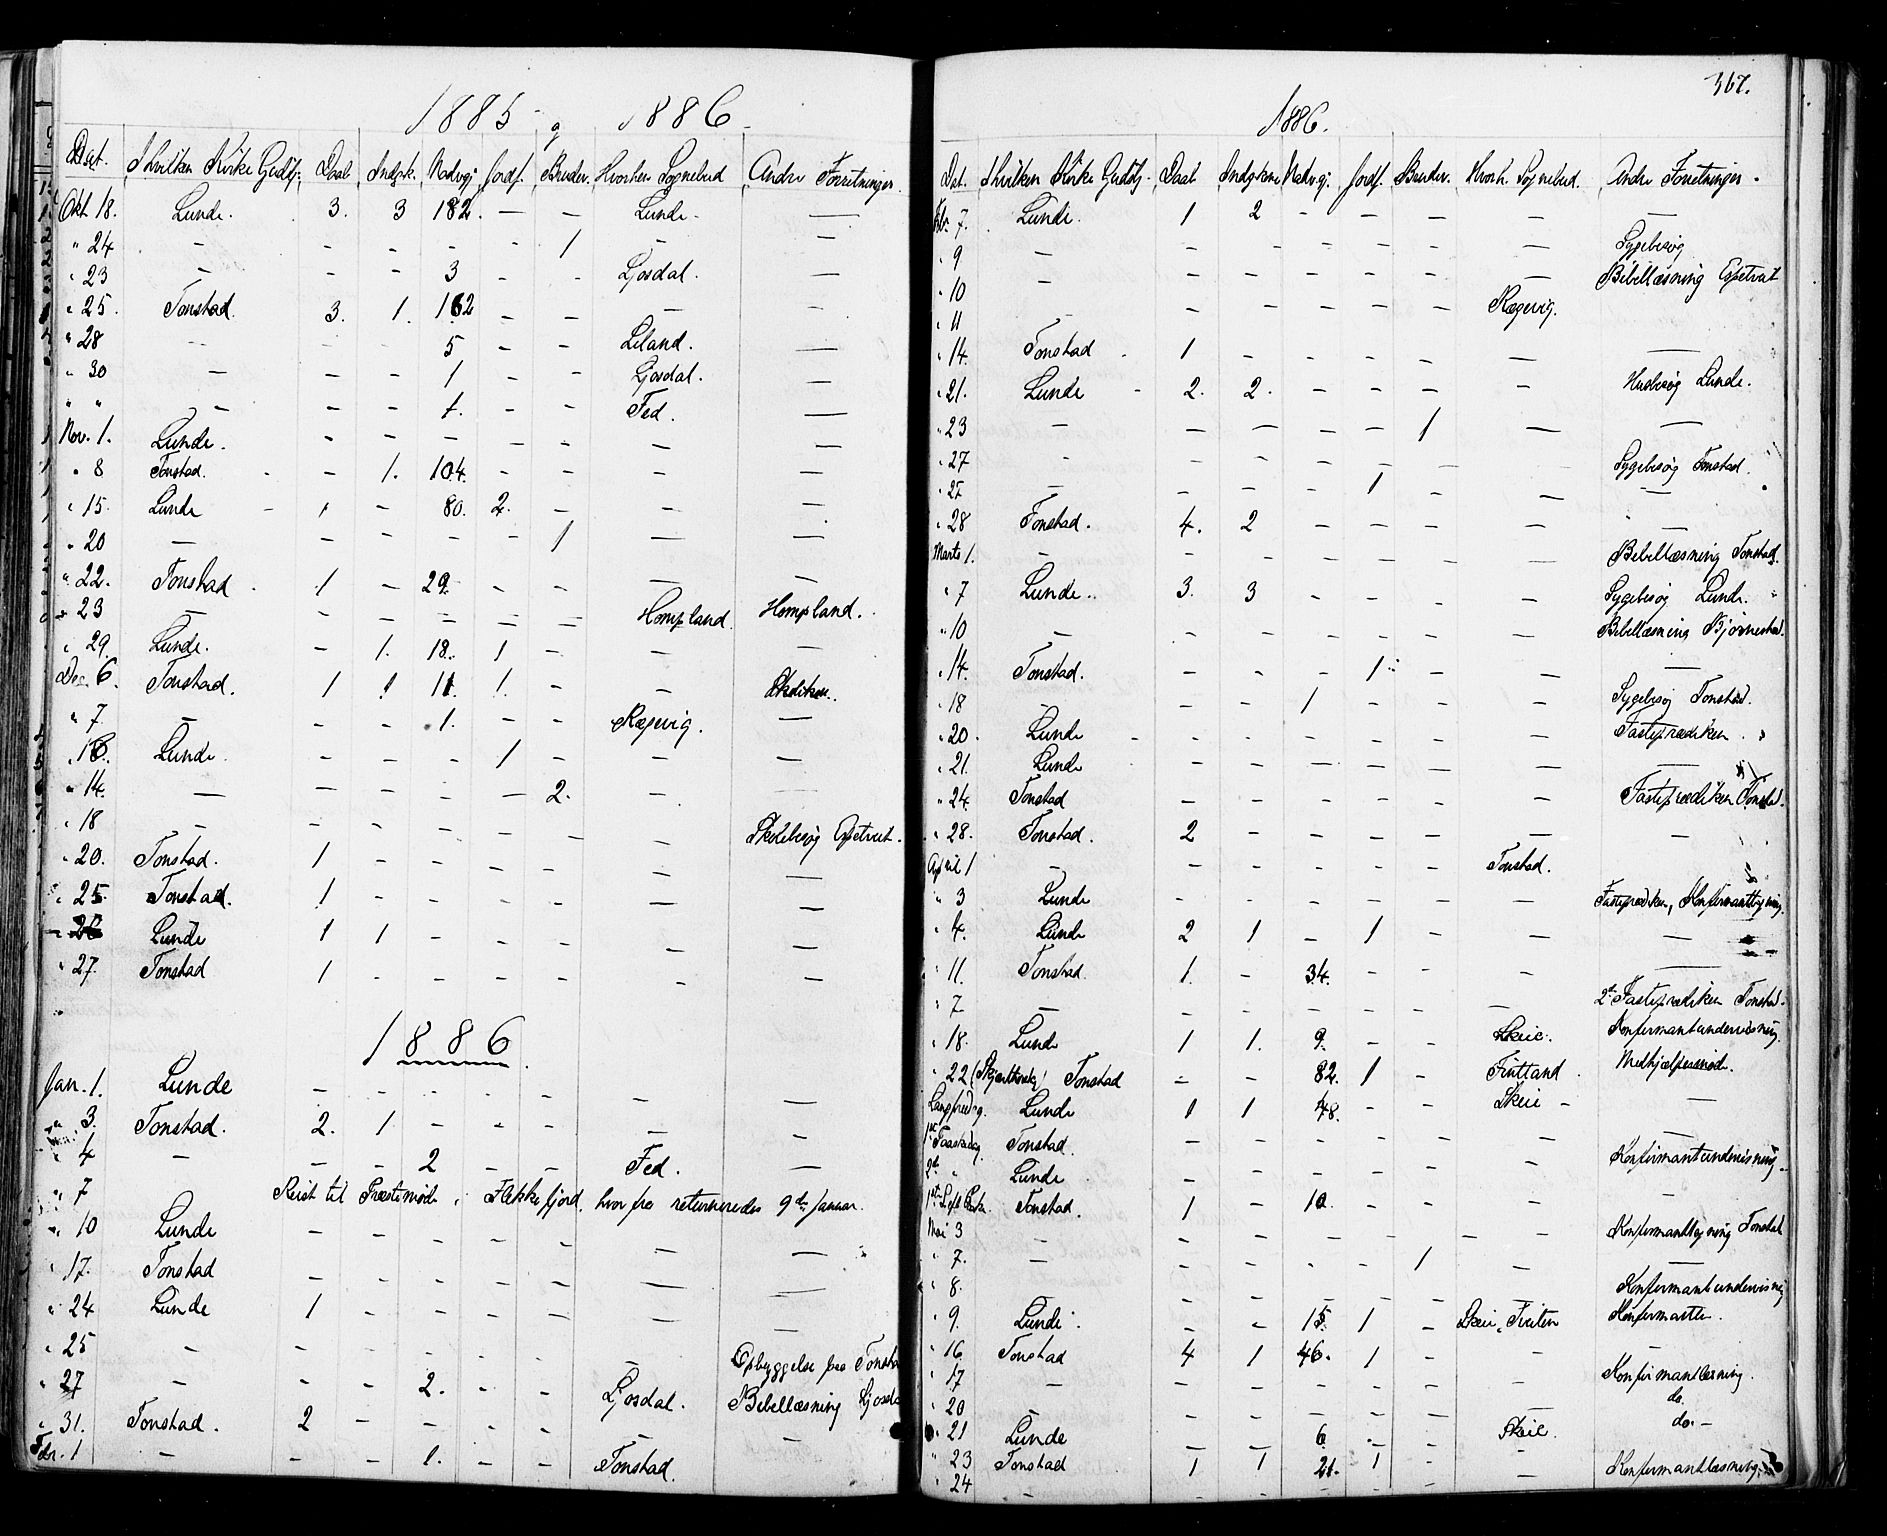 1885 og 1886.
Dat. I hvilken Kirke Gudstj. Daab Indgk. Nadvgj. Jordf. Brudev. Hvorhen Sognebud Andre Forretninger.
Okt 18. Lunde. 3. 3 182. — — Lunde. —
" 24 — — — — - 1 — —
" 23 — — — 3 - - Gjosdal. —
" 25. Tonstad. 3. 1. 162 — — — —
" 28 — — — 5 — — Liland. —
" 30 — — — 1 - - Gjosdal. —
" " — — — 1. — - Fed. —
Nov. 1. Lunde. - - — - - — —
" 8 Tonstad. - 1. 104. - - — —
" 15. Lunde 1 - 80. 2. - — —
" 20 — - - - - 1 — —
" 22. Tonstad 1 - 29. - - — —
" 23 — - - — — — Hompland. Hompland.
" 29. Lunde. - 1. 18. 1 - — —
Dec. 6. Tonstad. 1 1 11. 1. - —
" 7. — - - 1. - - Rægevig. —
" Lunde. - - - 1 - — —
" 14. — — - - — 2. — —
" 18 — - - - - - — Skolebesøg
" 20. Tonstad. 1 - - - - — —
" 25. Tonstad. 1 - - - - — —
Lunde 1 1 - - - — —
" 27. Tonstad 1 - - - - — —
1886.
Jan. 1. Lunde — - - - - — —
" 3. Tonstad. 2. 1. - - - — —
" 4 — — - 2 — — Fed. —
" 7 Reist til Præstemøde i Flekkefjord, hvorfra returneredes 9de Januar.
" 10 Lunde — - - - - — —
" 17. Tonstad - - - - - — —
" 24 Lunde 1 - - - - — —
" 25 - - - - - - — Opbyggelse paa Tonstad
" 27 — - - 2. - - Gjosdal. Bibellæsning Gjosdal
" 31. Tonstad. 2 — - - - - —
Febr. 1 — - - 1. - - Tonstad.
367.
1886.
Dat. I hvilken Kirke Gudstj. Daab Indgkone Nadvgj. Jordf. Brudev. Hvorh. Sognebud. Andre Forretninger.
Febr. 7. Lunde. 1 2 - - — — —
" 9 — - - - - - — Sygebesøg
" 10 — - - - - - — Bibellæsning
" 11 - - - - - Rægevig.
" 14. Tonstad 1 - - - - — —
" 21. Lunde 2. 2. - - — — Husbesøg Lunde.
" 23 — — — - - 1 — —
" 27 - - - - - - - Sygebesøg Tonstad.
— - - - 1 - — —
" 28 Tonstad. 4. 2 - - - — —
Marts 1. — - - - - - — Bibellæsning Tonstad.
" 7 Lunde. 3. 3 - - - — Sygebesøg Lunde.
" 10 — - - - - - — Bibellæsning Bjørnestad.
" 14. Tonstad. - - - 1 - — —
" 18 - - - 1 - - — Sygebesøg Tonstad.
" 20. Lunde - - - - - — Fasteprædiken.
" 21. Lunde - - - - - — —
" 24. Tonstad - - - - - — Fasteprædiken Tonstad.
" 28. Tonstad. 2 - - - - — —
April 1 — - - - - - Tonstad.
" 3 Lunde - - - - - — Fasteprædiken,
" 4. Lunde 2 1 - 1 - — —
" 11. Tonstad 1. - 34. - - - —
" 7. — - - - - - — 2d Fasteprædiken Tonstad.
" 18. Lunde 1 1. 9. - - Skeie. Konfirmantundervisning.
" 22 (Skjærthorsdag) Tonstad — - 82. 1 - Fintland. Medhjælpermøde.
Langfredag. Lunde 1 1 48. - - Skeie —
1ste Paaskedag Tonstad. - - - - - — —
2d " Lunde - - - - - - Konfirmantundervisning.
Tonstad. 1 - 10. - - — -
Mai 3 — - - - - - — Tonstad
" 7. - - - - 1 - —
" 8. - - - - - — Konfirmantundervisning
" 9. Lunde. - - 15. 1 - Skeie,
" 16. Tonstad 4 1 46. 1 - - -
" 17 — - - - - - - Konfirmantlæsning.
" 20 — - - - - - - do.
" 21 Lunde — — 6 - - Skeie. do. —
" 23 Tonstad 1 1 21. 1 - — Konfirmantlæsning.
" 24 -